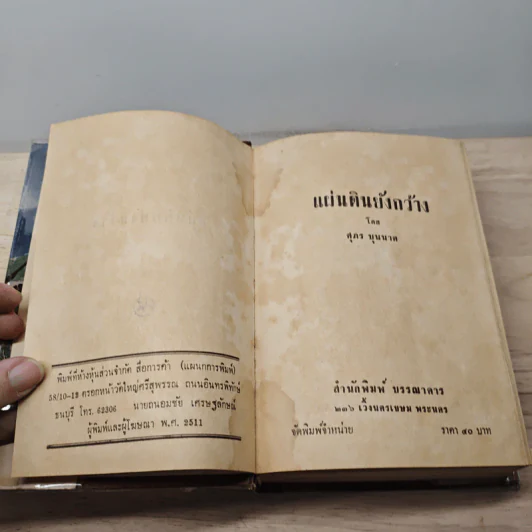 พิมพ์ที่ห้างหุ้นส่วนจำกัด สื่อการค้า (แผนกการพิมพ์)
58/10-12 ตรอกหน้าวัดใหญ่ศรีสุพรรณ ถนนอินทรพิทักษ์
ธนบุรี โทร. 62306 นายถนอมชัย เศรษฐลักษณ์
ผู้พิมพ์และผู้โฆษณา พ.ศ. 2511
แผ่นดินยังกว้าง
โดย
สุภร บุนนาค
สำนักพิมพ์ บรรณาคาร
๒๓๖ เวิ้งนครเขษม พระนคร
จัดพิมพ์จำหน่าย ราคา ๔๐ บาท